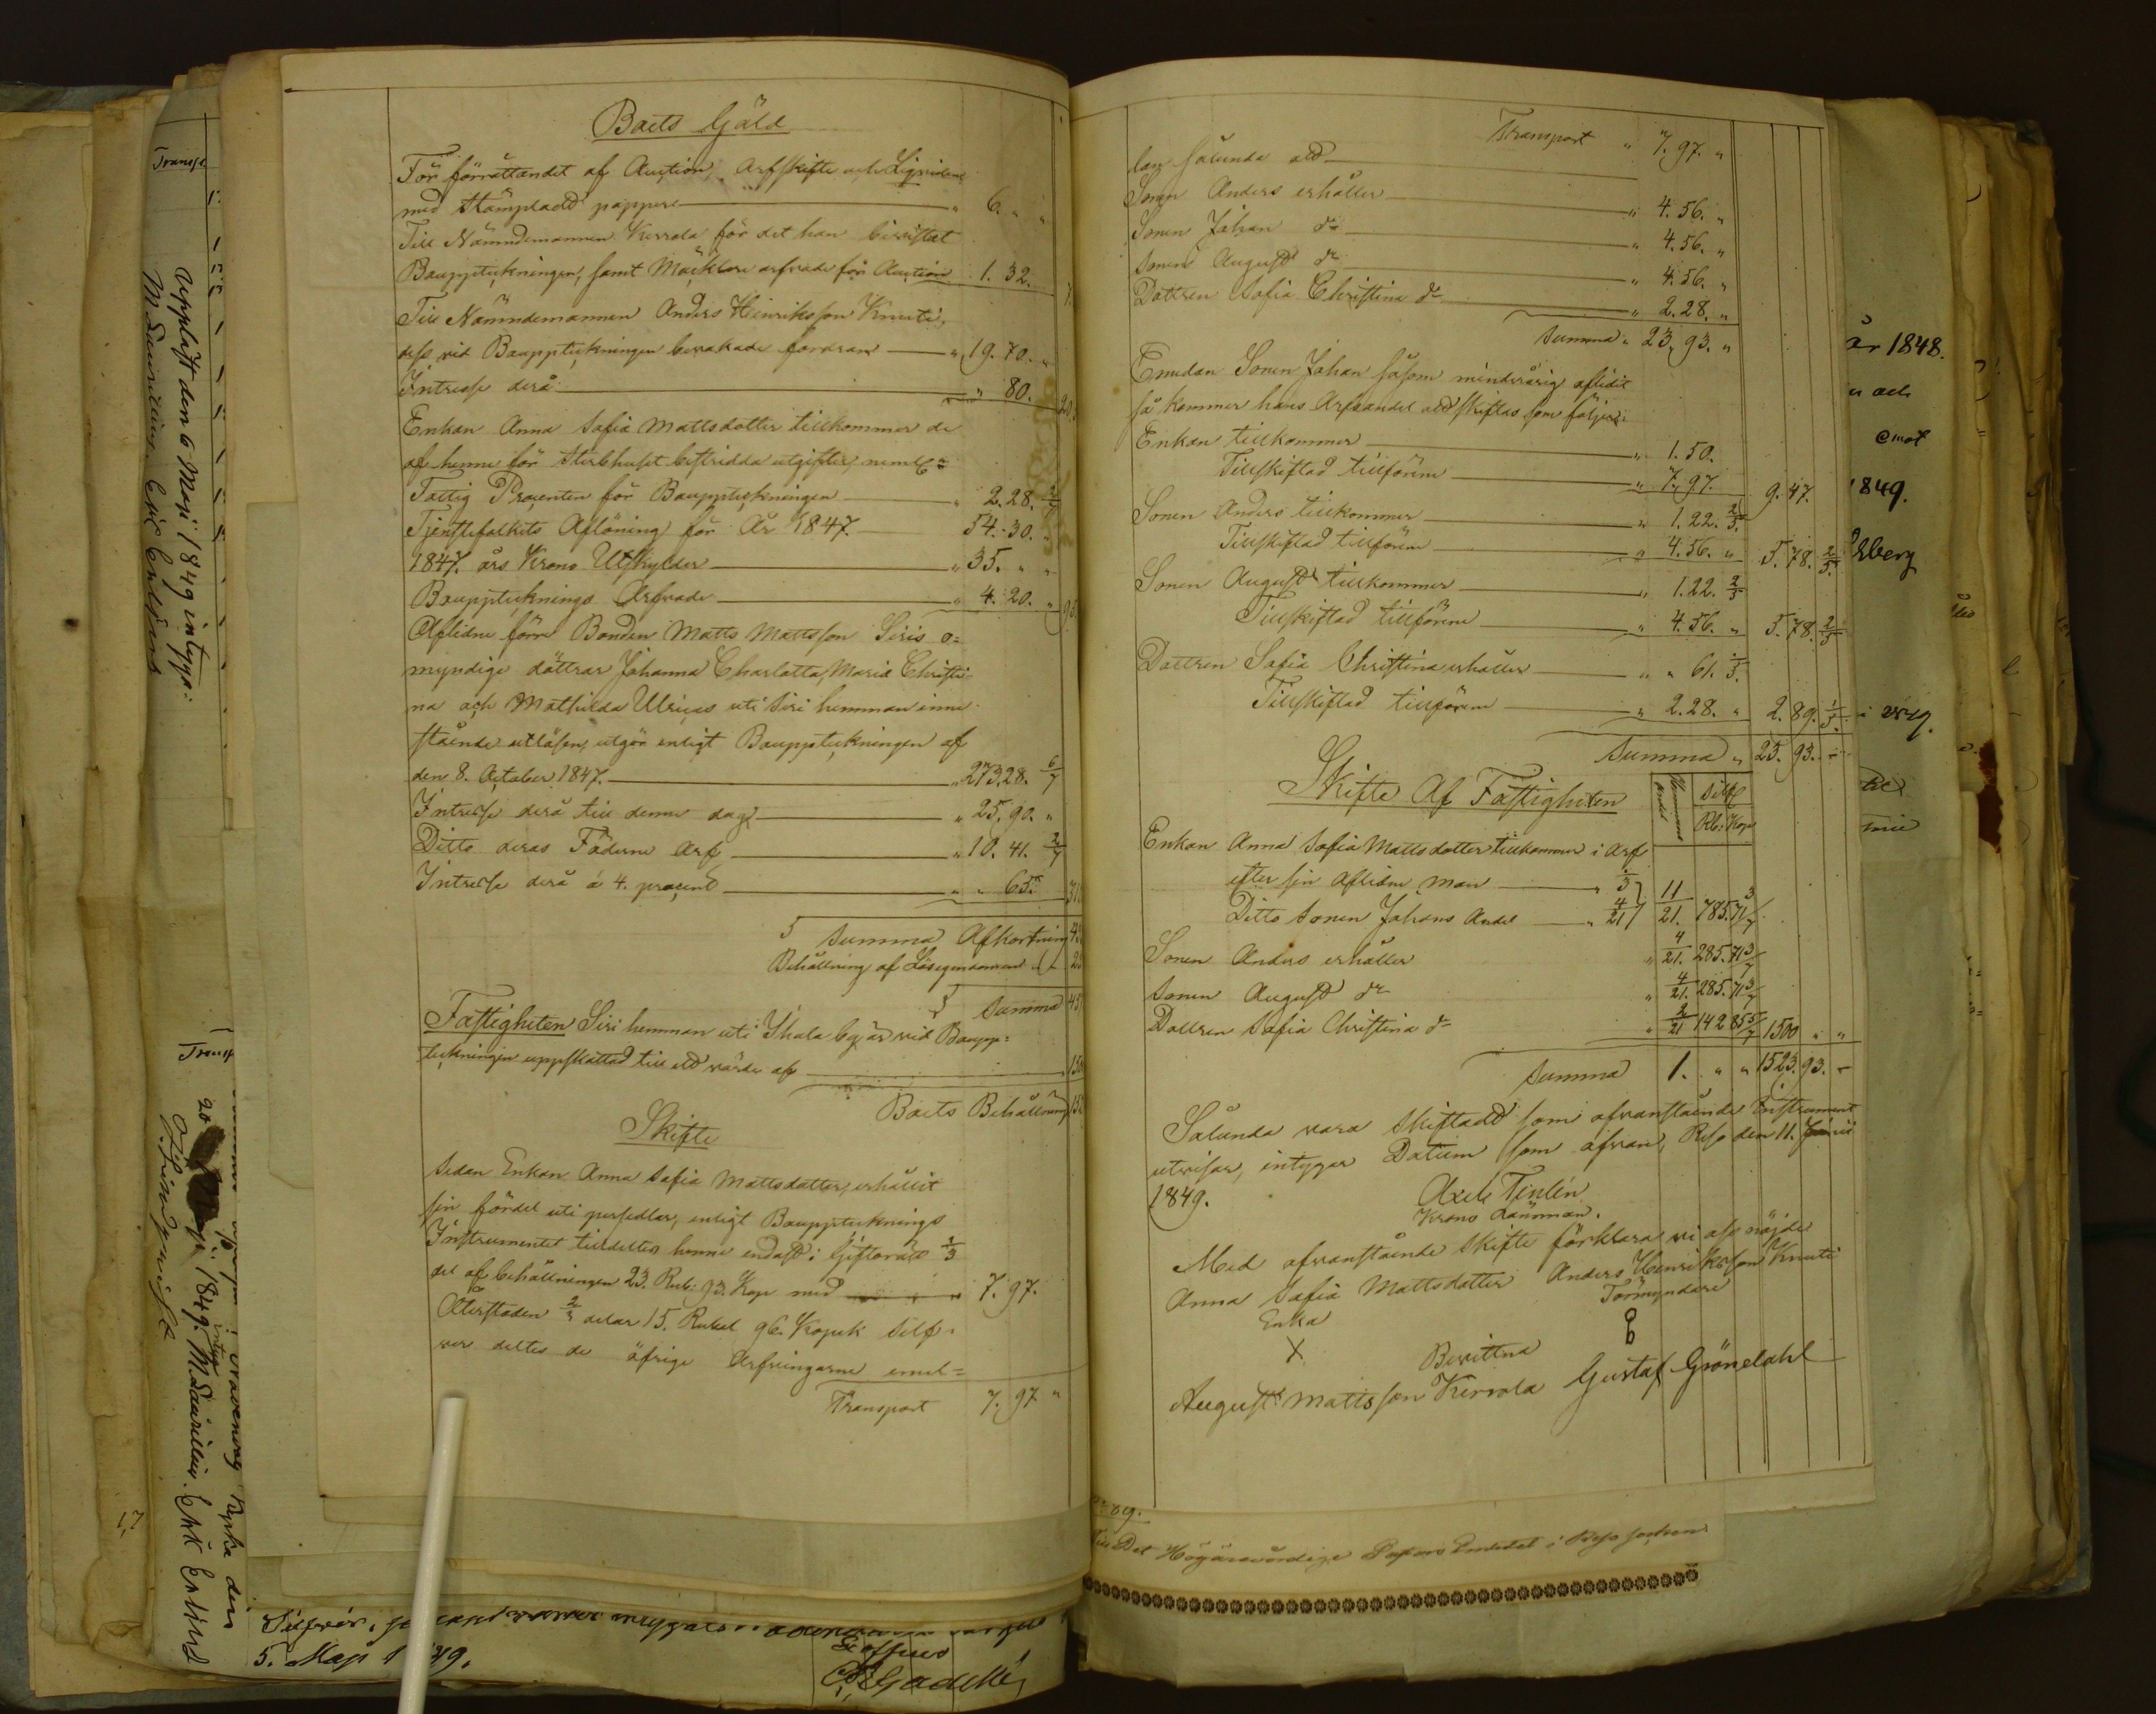 Boets Gäld
För förrättandet af Auction, Arfskifte och Liqviden
med stämpladt pappers " 6. " "
Till Nämndemannen Kerrola för det han bevistat
Bouppteckningen, samt Mäcklare arfvode för Auction 1. 32.
Till Nämndemannen Anders Henriksson Knuuti,
dess vid Bouppteckningen bevakade fordran " 19. 70. "
Intresse derå " 80.
Enkan Anna Sofia Mattsdotter tillkommer de
af henne för Sterbhuset bestridda utgifter, neml:
Fattig Procenten för Bouppteckningen " 2. 28. 2/7
Tjenstefolkets Aflöning för År 1847. 54. 30. "
1847. års Krono Utskylder " 35. " "
Bouppteknings Arfvode " 4. 20. "
Aflidne förre Bonden Matts Mattsson Siris o=
myndige döttrar Johanna Charlotta, Maria Christi=
na och Mathilda Ulricas uti Siri hemman inne-
stående utlåsen, utgör enligt Bouppteckningen af
den 8. October 1847. " 273.28. 6/7
Intresse derå till denne dag " 25. 90. "
Ditto deras Fäderne Arf " 10. 41. 2/7
Intresse derå á 4. procent " " 65.
Summa Afkortning
Behållning af Lösegendomen
Summa
Fastigheten Siri hemman uti Ihala by, är vid Boupp=
teckningen uppskattad till ett värde af
Boets Behållning
Skifte
Sedan Enkan Anna Sofia Mattsdotter, erhållit
sin fördel uti persedlar, enligt Bouppteknings
Instrumentet tilldeltes henne endast i Giftorätt 1/3
del af behållningen 23. Rub: 93. Kop: med 7. 97.
Återstoden 2/3 delar 15. Rubel 96. Kopek Silf-
ver deltes de öfrige Arfvingarne emel=
Transport 7. 97 "
Transport " 7. 97. "
lan sålunda att
Sonen Anders erhåller " 4. 56. "
Sonen Johan do " 4. 56. "
Sonen August do " 4. 56. "
Dottren Sofia Christina do " 2. 28. "
Summa " 23. 93. "
Emedan Sonen Johan såsom minderårig aflidit
så kommer hans Arfsandel att skiftas som följer:
Enkan tillkommer " 1. 50.
Tillskiftad tillförene " 7. 97. 9. 47.
Sonen Anders tillkommer " 1. 22. 2/5
Tillskiftad tillförene " 4. 56. " 5. 78. 2/5
Sonen August tillkommer " 1. 22. 2/5
Tillskiftad tillförene " 4. 56. " 5. 78. 2/5
Dottren Sofia Christina erhåller " " 61. 1/5
Tillskiftad tillförene " 2. 28. " 2. 89. 1/5
Summa " 23. 93. "
Skifte Af Fastigheten
Silf
Rb: Kop
Enkan Anna Sofia Mattsdotter tillkommer i Arf
efter sin Aflidne man " 1/3
Ditto Sonen Johans Andel " 4/21 11/21. 785. 71 3/7
Sonen Anders erhåller " 4/21. 285. 71 3/7
Sonen August do " 4/21. 285. 71 3/7
Dottren Sofia Christina do " 2/21 142 85 5/7 1500 " "
Summa 1. " " 1523. 93. "
Sålunda vara skiftadt som ofvanstående Instrument
utvisar, intygar Datum som ofvan, Reso den 11. Junii
1849.
Axel Tinlén
Krono Länsman.
Med ofvanstående skifte förklara vi oss nöjde
Anna Sofia Mattsdotter Anders Henriksson Knuuti
Enka Förmyndare
X
Bevittna
August Mattsson Kerrola Gustaf Grönedahl
Till Det Högärevördige Pastors Embetet i Reso Socken
Uppläst den 6 Maji 1849 intyga:
1849. intyga
Transp
5. Maji 1849.
år 1848.
och
emot
1849.